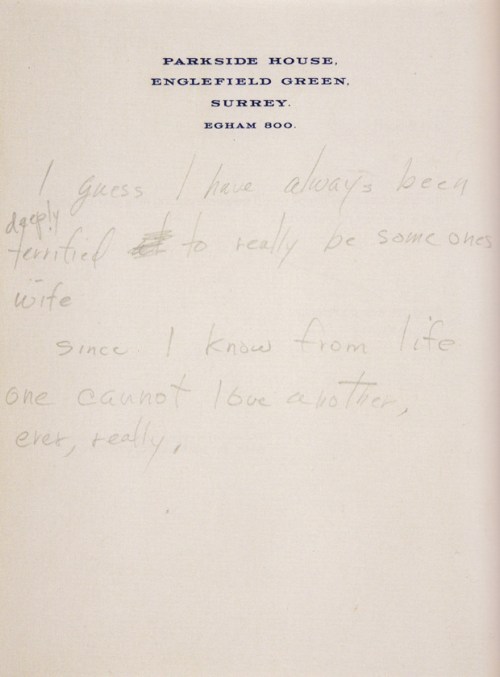 PARKSIDE HOUSE,
ENGLEFIELD GREEN,
SURREY.
EGHAM 800.
I guess I have always been
deeply
terrified to really be some ones
wife
since I know from life
one cannot love another,
ever, really,